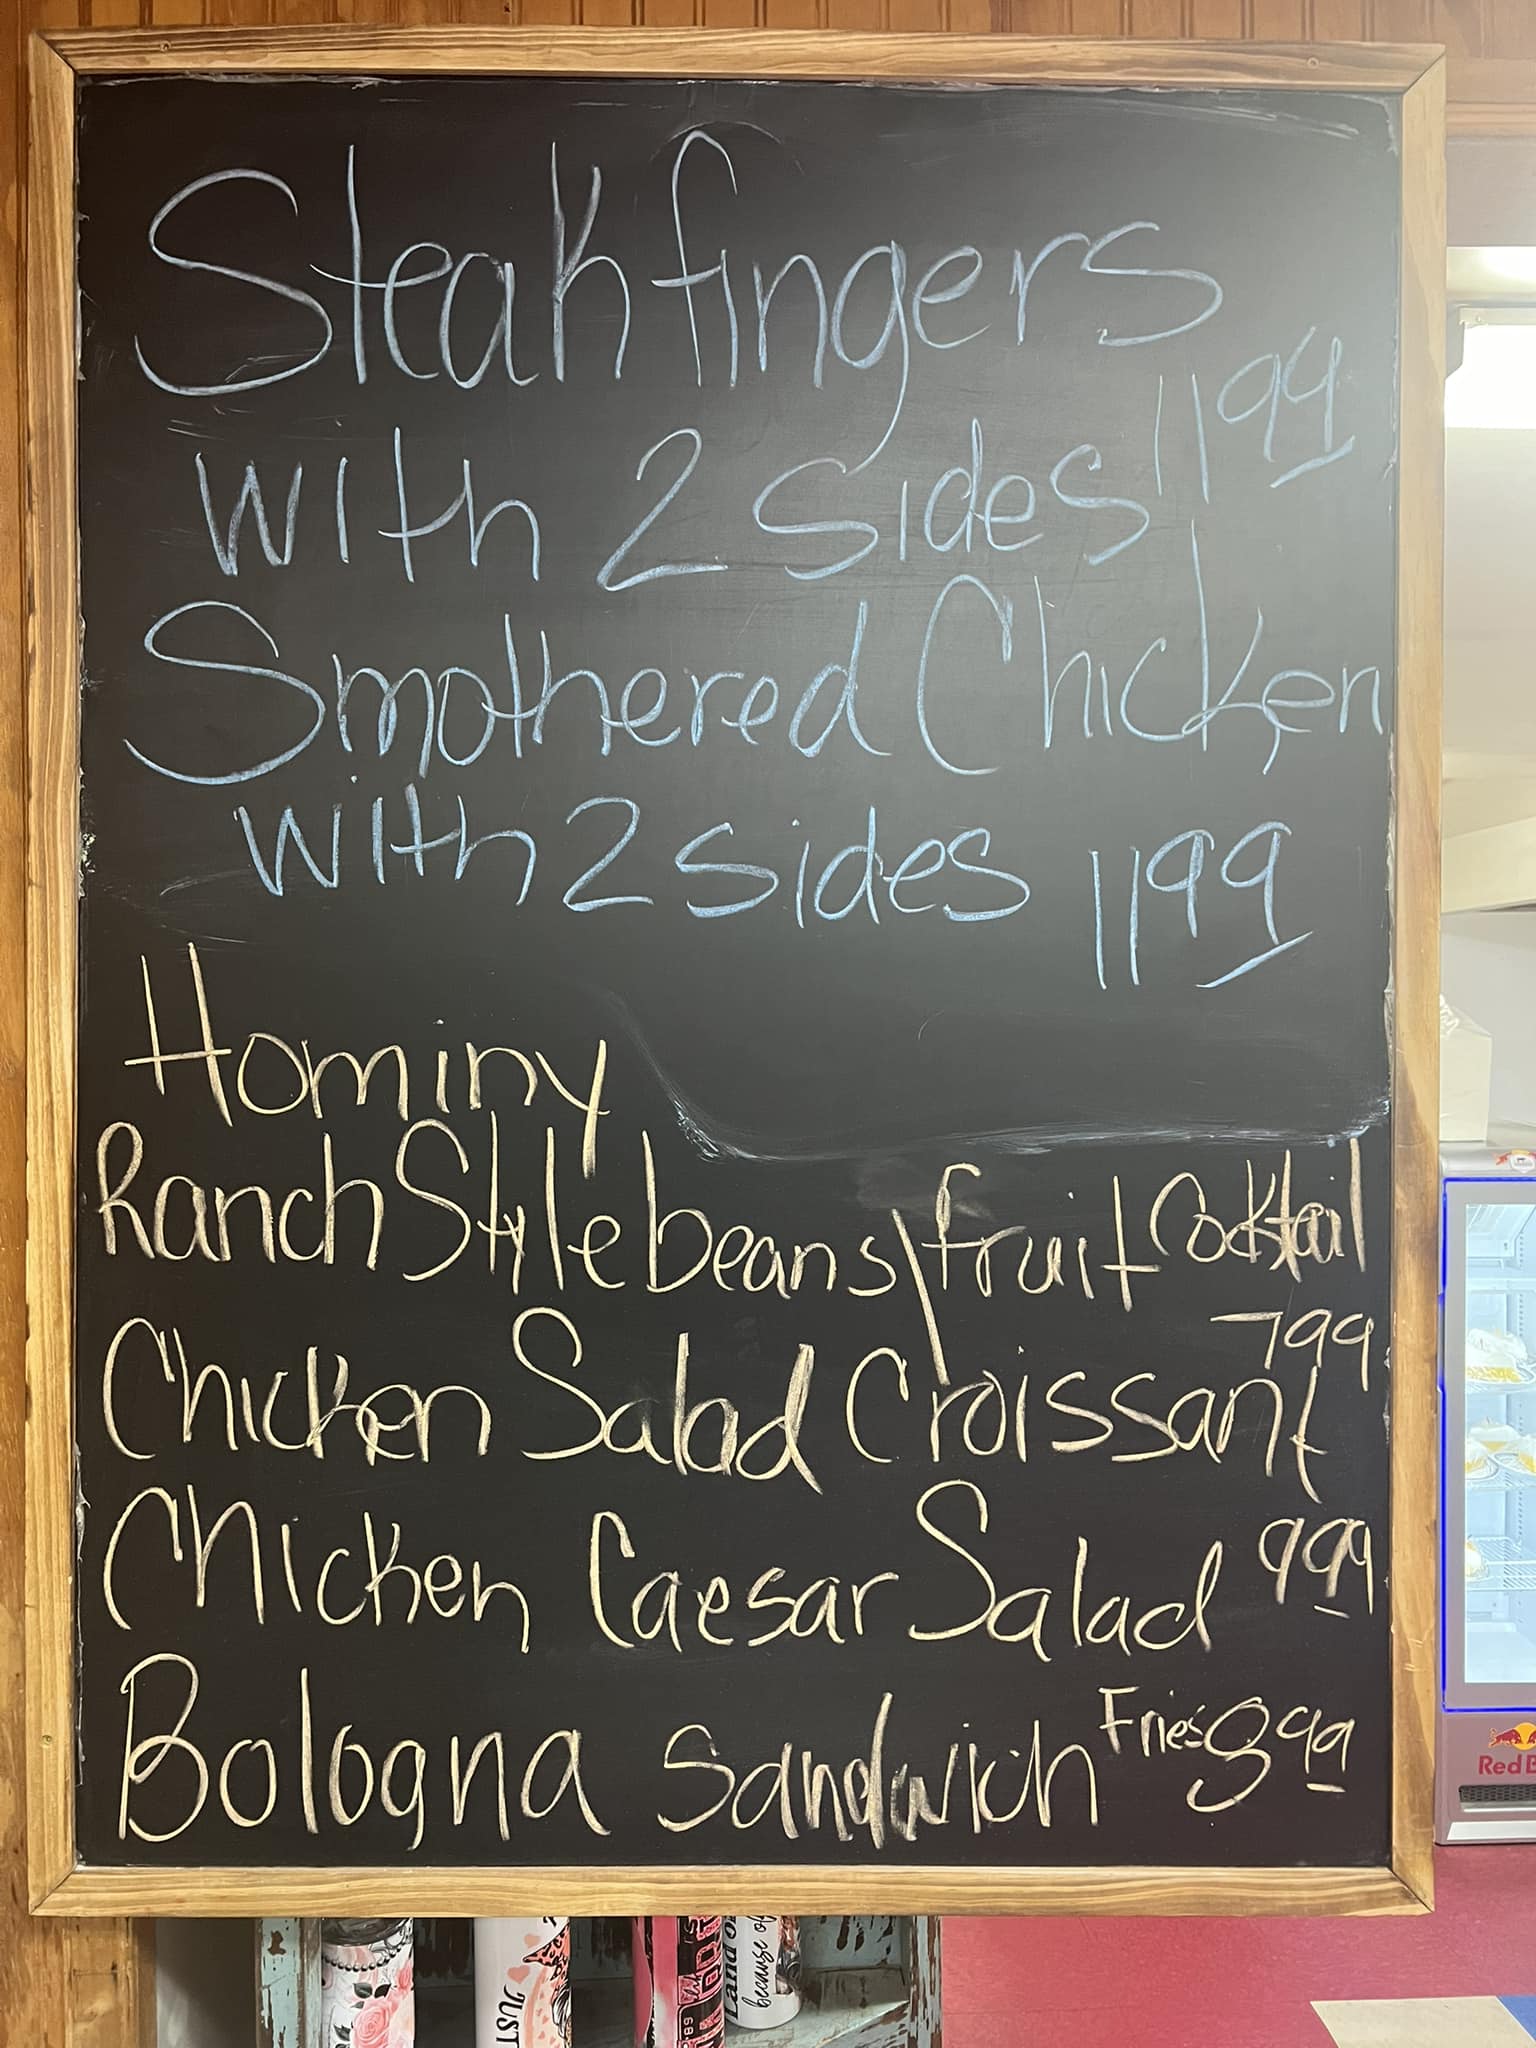 Steak fingers
with 2 sides 11 99
Smothered Chicken
with 2 sides 11 99
Hominy
Ranch Style beans \ fruit Cocktail
Chicken Salad Croissant 7 99
Chicken Caesar Salad 9 99
Bologna Sandwich Fries 8 99
Red B
JUST
Land o
because of